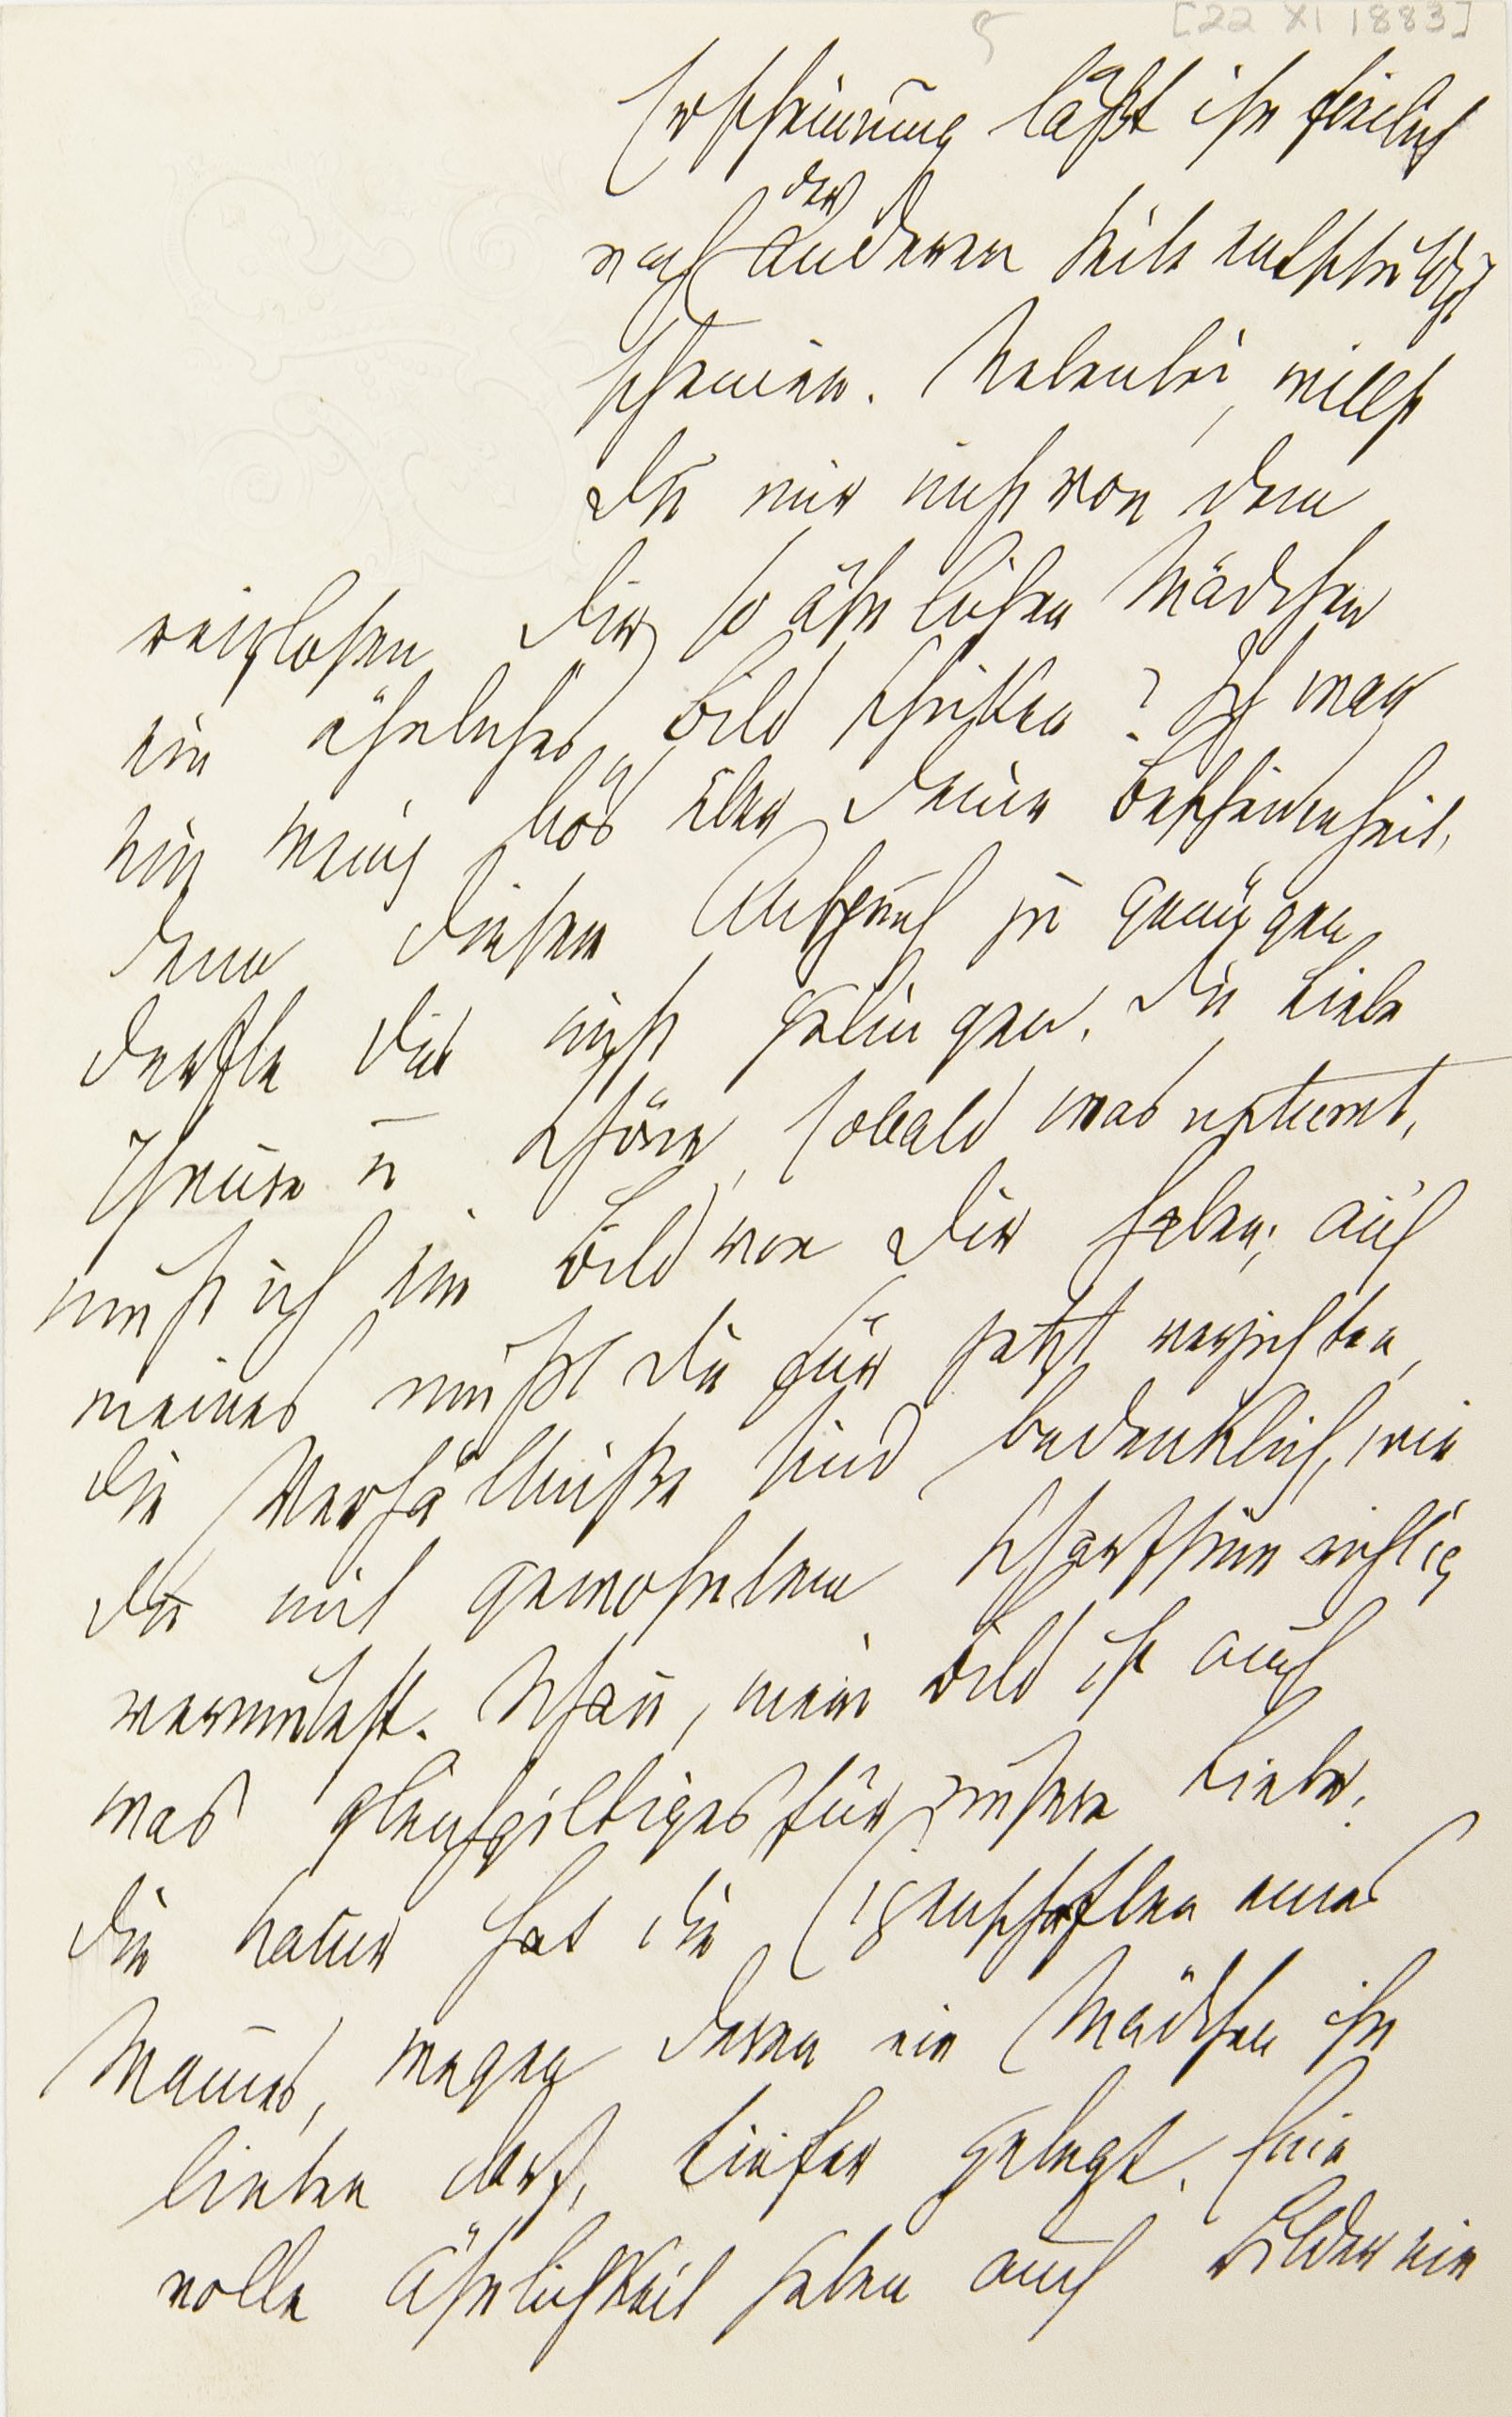 [22 XI 1883]
Erscheinung läßt ihn freilich
der
nach anderen Seite entschuldigt
scheinen. Nebenbei, willst
Du mir nicht von dem
reizlosen Dir so ähnlichen Mädchen
ein ähnliches Bild schicken? Ich war
ein wenig bös über Deine Bescheidenheit,
denn diesem Anspruch zu genügen
dürfte Dir nicht gelingen. Du Liebe
Theure u Schöne, sobald was
muß ich ein Bild von Dir haben; auf
meines mußt Du für jetzt verzichten,
die Verhältniße sind bedenklich, wie
Du mit gewohntem Scharfsinn richtig
vermutest. Schau, mein Bild ist auch
was gleichgiltiges für unsere Liebe,
die Natur hat die Eigenschaften eines
Mannes, wegen deren ein Mädchen ihn
lieben darf, tiefer gelegt. Eine
volle Ähnlichkeit haben auch Bilder nie